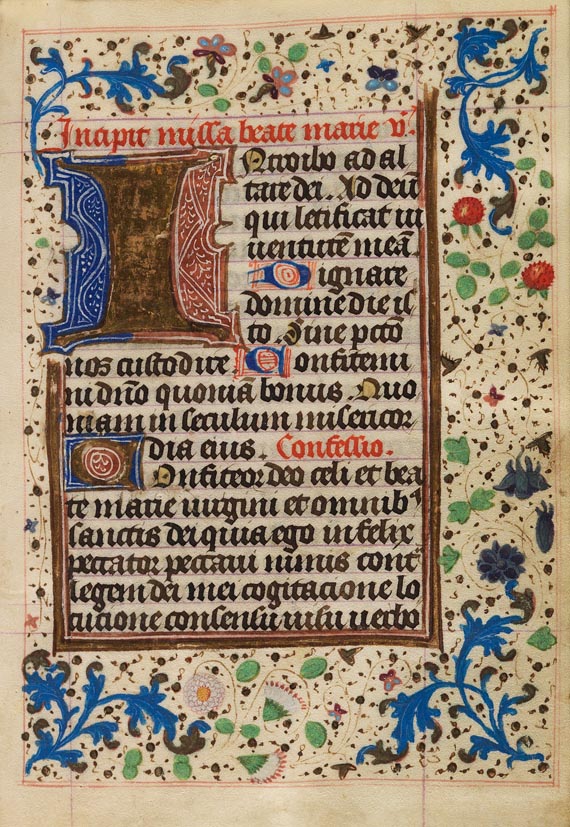 Incipit missa beate marie v.
INtroibo ad al
tare dei. Ad deū
qui letificat iu
uentutē meā
Dignare
domine die is
to. Sine pctō
nos custodire. Confitemi
ni dn̄o quoniā bonus. Quo
niam in seculum misericor
dia eius. Confessio.
Confiteor deo celi et bea
te marie uirgini et omnibꝰ
sanctis dei quia ego infelix
peccator peccaui nimis cont̄
legem dei mei cogitacione lo
cucione consensu uisu uerbo